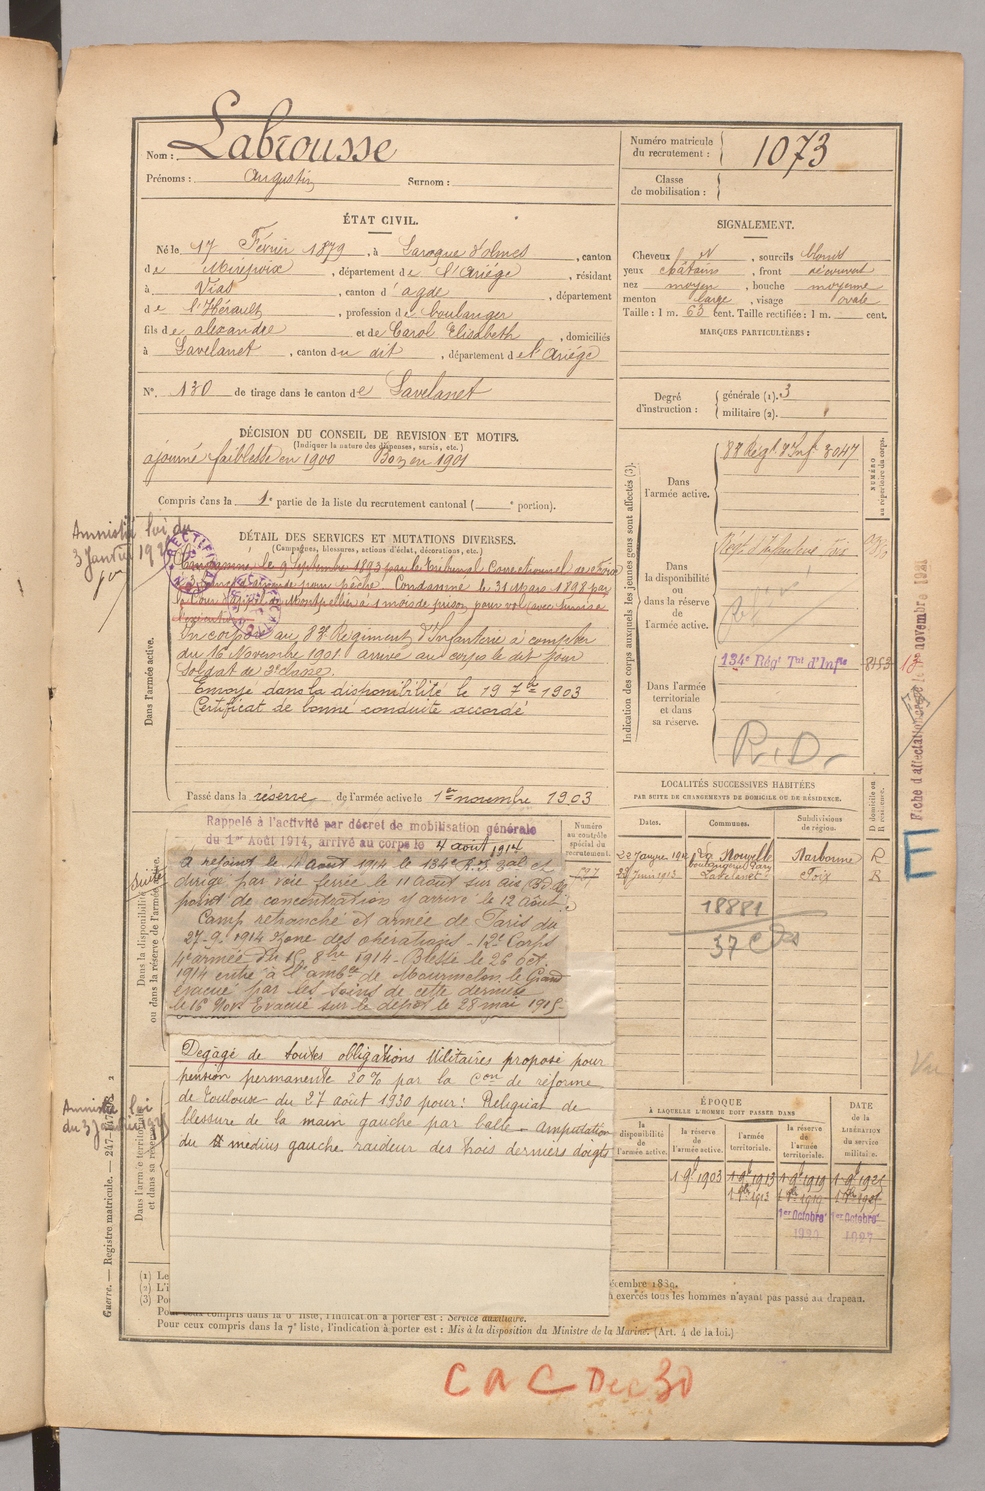 Nom : Labrousse
Prénoms : Augustin Surnom :
Numéro matricule du recrutement : 1073
Classe de mobilisation :
ÉTAT CIVIL.
Né le 17 Février 1879, à Laroque d'olmes, canton
de Mirepoix, département de l'Ariége, résidant
à Vias, canton d'agde, département
de l'Hérault, profession de boulanger
fils de alexandre et de Carol Elisabeth, domiciliés
à Lavelanet, canton du dit, département de l'Ariége
N°. 130 de tirage dans le canton de Lavelanet
SIGNALEMENT.
Cheveux , sourcils blonds
yeux chatains, front découvert
nez moyen, bouche moyenne
menton large, visage ovale
Taille : 1 m. 63 cent. Taille rectifiée : 1 m. cent.
MARQUES PARTICULIÈRES :
Degré d'instruction : générale (1). 3
militaire (2).
DÉCISION DU CONSEIL DE REVISION ET MOTIFS.
(Indiquer la nature des dispenses, sursis, etc.)
ajourné faiblesse en 1900 Bon en 1901
Compris dans la 1e partie de la liste du recrutement cantonal ( e portion).
Amnistié loi du
3 Janvier 1925
DÉTAIL DES SERVICES ET MUTATIONS DIVERSES.
(Campagnes, blessures, actions d'éclat, décorations, etc.)
Condamné le 9 Septembre 1893 par le Tribunal Correctionnel de Foix
pour pêche. Condamné le 31 Mars 1898 par
la Cour d'appel de Montpellier à 1 mois de prison pour vol (avec sursis à
l'exécution)
Dans l'armée active.
Incorporé au 87e Régiment d'Infanterie à compter
du 16 Novembre 1901. arrivé au corps le dit jour
Soldat de 2e classe.
Envoyé dans la disponibilité le 19 7bre 1903
Certificat de bonne conduite accordé
Passé dans la réserve de l'armée active le 1er novembre 1903
Indication des corps auxquels les jeunes gens sont affectés (3).
NUMÉRO au répertoire du corps.
Dans l'armée active. 87 Régt d'Inf 3047
Dans la disponibilité ou dans la réserve de l'armée active. Régt d'Infanterie Foix
Dans l'armée territoriale et dans sa réserve. 134e Régt Tal d'Infie
R. D.
Fiche d'affectation novembre 1921
LOCALITÉS SUCCESSIVES HABITÉES
PAR SUITE DE CHANGEMENTS DE DOMICILE OU DE RÉSIDENCE.
Dates. Communes. Subdivisions de région. D domicile ou R résidence.
La Nouvelle Narbonne R
Juin 1913 Lavelanet Foix R
18881
37
E
Rappelé à l'activité par décret de mobilisation générale
du 1er Août 1914, arrivé au corps le 4 aout 1914
Numéro au contrôle spécial du recrutement.
Dans la disponibilité ou dans la réserve de l'armée active.
(Suite)
A rejoint le 4 Août 1914 le 134e
dirigé par voie ferrée le 11 Août sur
point de concentration y arrivé le 12 Août
Camp retranché et armée de Paris du
27-9-1914 Zone des opérations - 12e Corps
4e armée du 15 8bre 1914 - Blessé le 26 Oct.
1914 entré à l'ambce de Mourmelon le Grand
évacué par les soins de cette dernière
le 16 Nov. Evacué sur le dépot le 28 mai 1915
Dégagé de toutes obligations Militaires proposé pour
pension permanente 20% par la Con de réforme
de Toulouse du 27 août 1930 pour : Reliquat de
blessure de la main gauche par balle - amputation
du medius gauche raideur des trois derniers doigts
Amnistié loi
du 3 Janvier
Dans l'armée territoriale et dans sa réserve.
ÉPOQUE
À LAQUELLE L'HOMME DOIT PASSER DANS
la disponibilité de l'armée active.
la réserve de l'armée active.
l'armée territoriale.
la réserve de l'armée territoriale.
DATE de la LIBÉRATION du service militaire.
1 9e 1903
1er Octobre 1er Octobre
Guerre. — Registre matricule. — 247
(1) Le
(2) L'i
(3) Po
exercés tous les hommes n'ayant pas passé au drapeau.
Pour ceux compris dans la 6e liste, l'indication à porter est : Service auxiliaire.
Pour ceux compris dans la 7e liste, l'indication à porter est : Mis à la disposition du Ministre de la Marine. (Art. 4 de la loi.)
Vu
C a C Dec 30